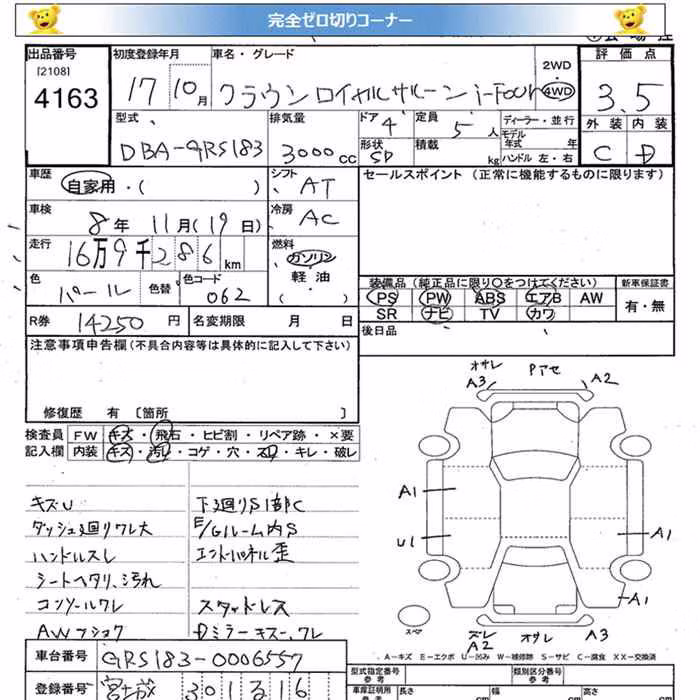 完全ゼロ切りコーナー
出品番号 初度登録年月 車名・グレード 評価点
[2108]
4163
17 10月 クラウン ロイヤルサルーン i-Four 2WD 4WD
3.5
型式 排気量 ドア 4 定員 5人 ディーラー・並行 外装 内装
モデル年式 年
DBA-GRS183 3000cc 形状 SD 積載 kg ハンドル 左・右 C D
車歴 シフト セールスポイント(正常に機能するものに限ります)
自家用・( ) AT
車検 冷房
8年 11月(19日) AC
走行 燃料
16万9千286km ガソリン
軽油
( )
色 色替 色コード
パール 062
装備品(純正品に限り〇をつけてください) 新車保証書
PS PW ABS エアB AW 有・無
SR ナビ TV カワ
R券 14250円 名変期限 月 日
後日品
注意事項申告欄(不具合内容等は具体的に記入して下さい)
修復歴 有 [箇所 ]
検査員 FW キズ・飛石・ヒビ割・リペア跡・×要
記入欄 内装 キズ・汚レ・コゲ・穴・スレ・キレ・破レ
キズU 下廻りS1部C
ダッシュ廻りワレ大 E/Gルーム内S
ハンドルスレ エンドパネル歪
シートヘタリ、汚れ
コンソールワレ スタッドレス
AW Dミラーキズ、ワレ
オサレ Pアセ
A3 A2
A1
U1 A1
A1
スペア
ズレ オサレ A3
A2
A-キズ E-エクボ U-凹み W-補修跡 S-サビ C-腐食 XX-交換済
車台番号 GRS183-0006557
型式指定番号 類別区分番号
参考 参考
登録番号 宮城 301 16
車庫証明用 長さ 幅 高さ
参考 cm cm cm